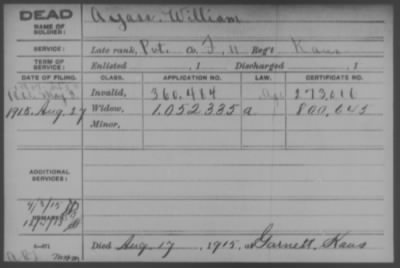 DEAD
NAME OF SOLDIER:
William
SERVICE:
Late rank, Pvt. Reg't Kans
TERM OF SERVICE:
Enlisted , 1 Discharged , 1
DATE OF FILING. CLASS. APPLICATION NO. LAW. CERTIFICATE NO.
Invalid, 360,484 273,016
1915, Aug. 27 Widow, 1,052,335 a 800,645
Minor,
ADDITIONAL SERVICES:
REMARKS:
Died Aug. 17, 1915, at Garnett, Kans